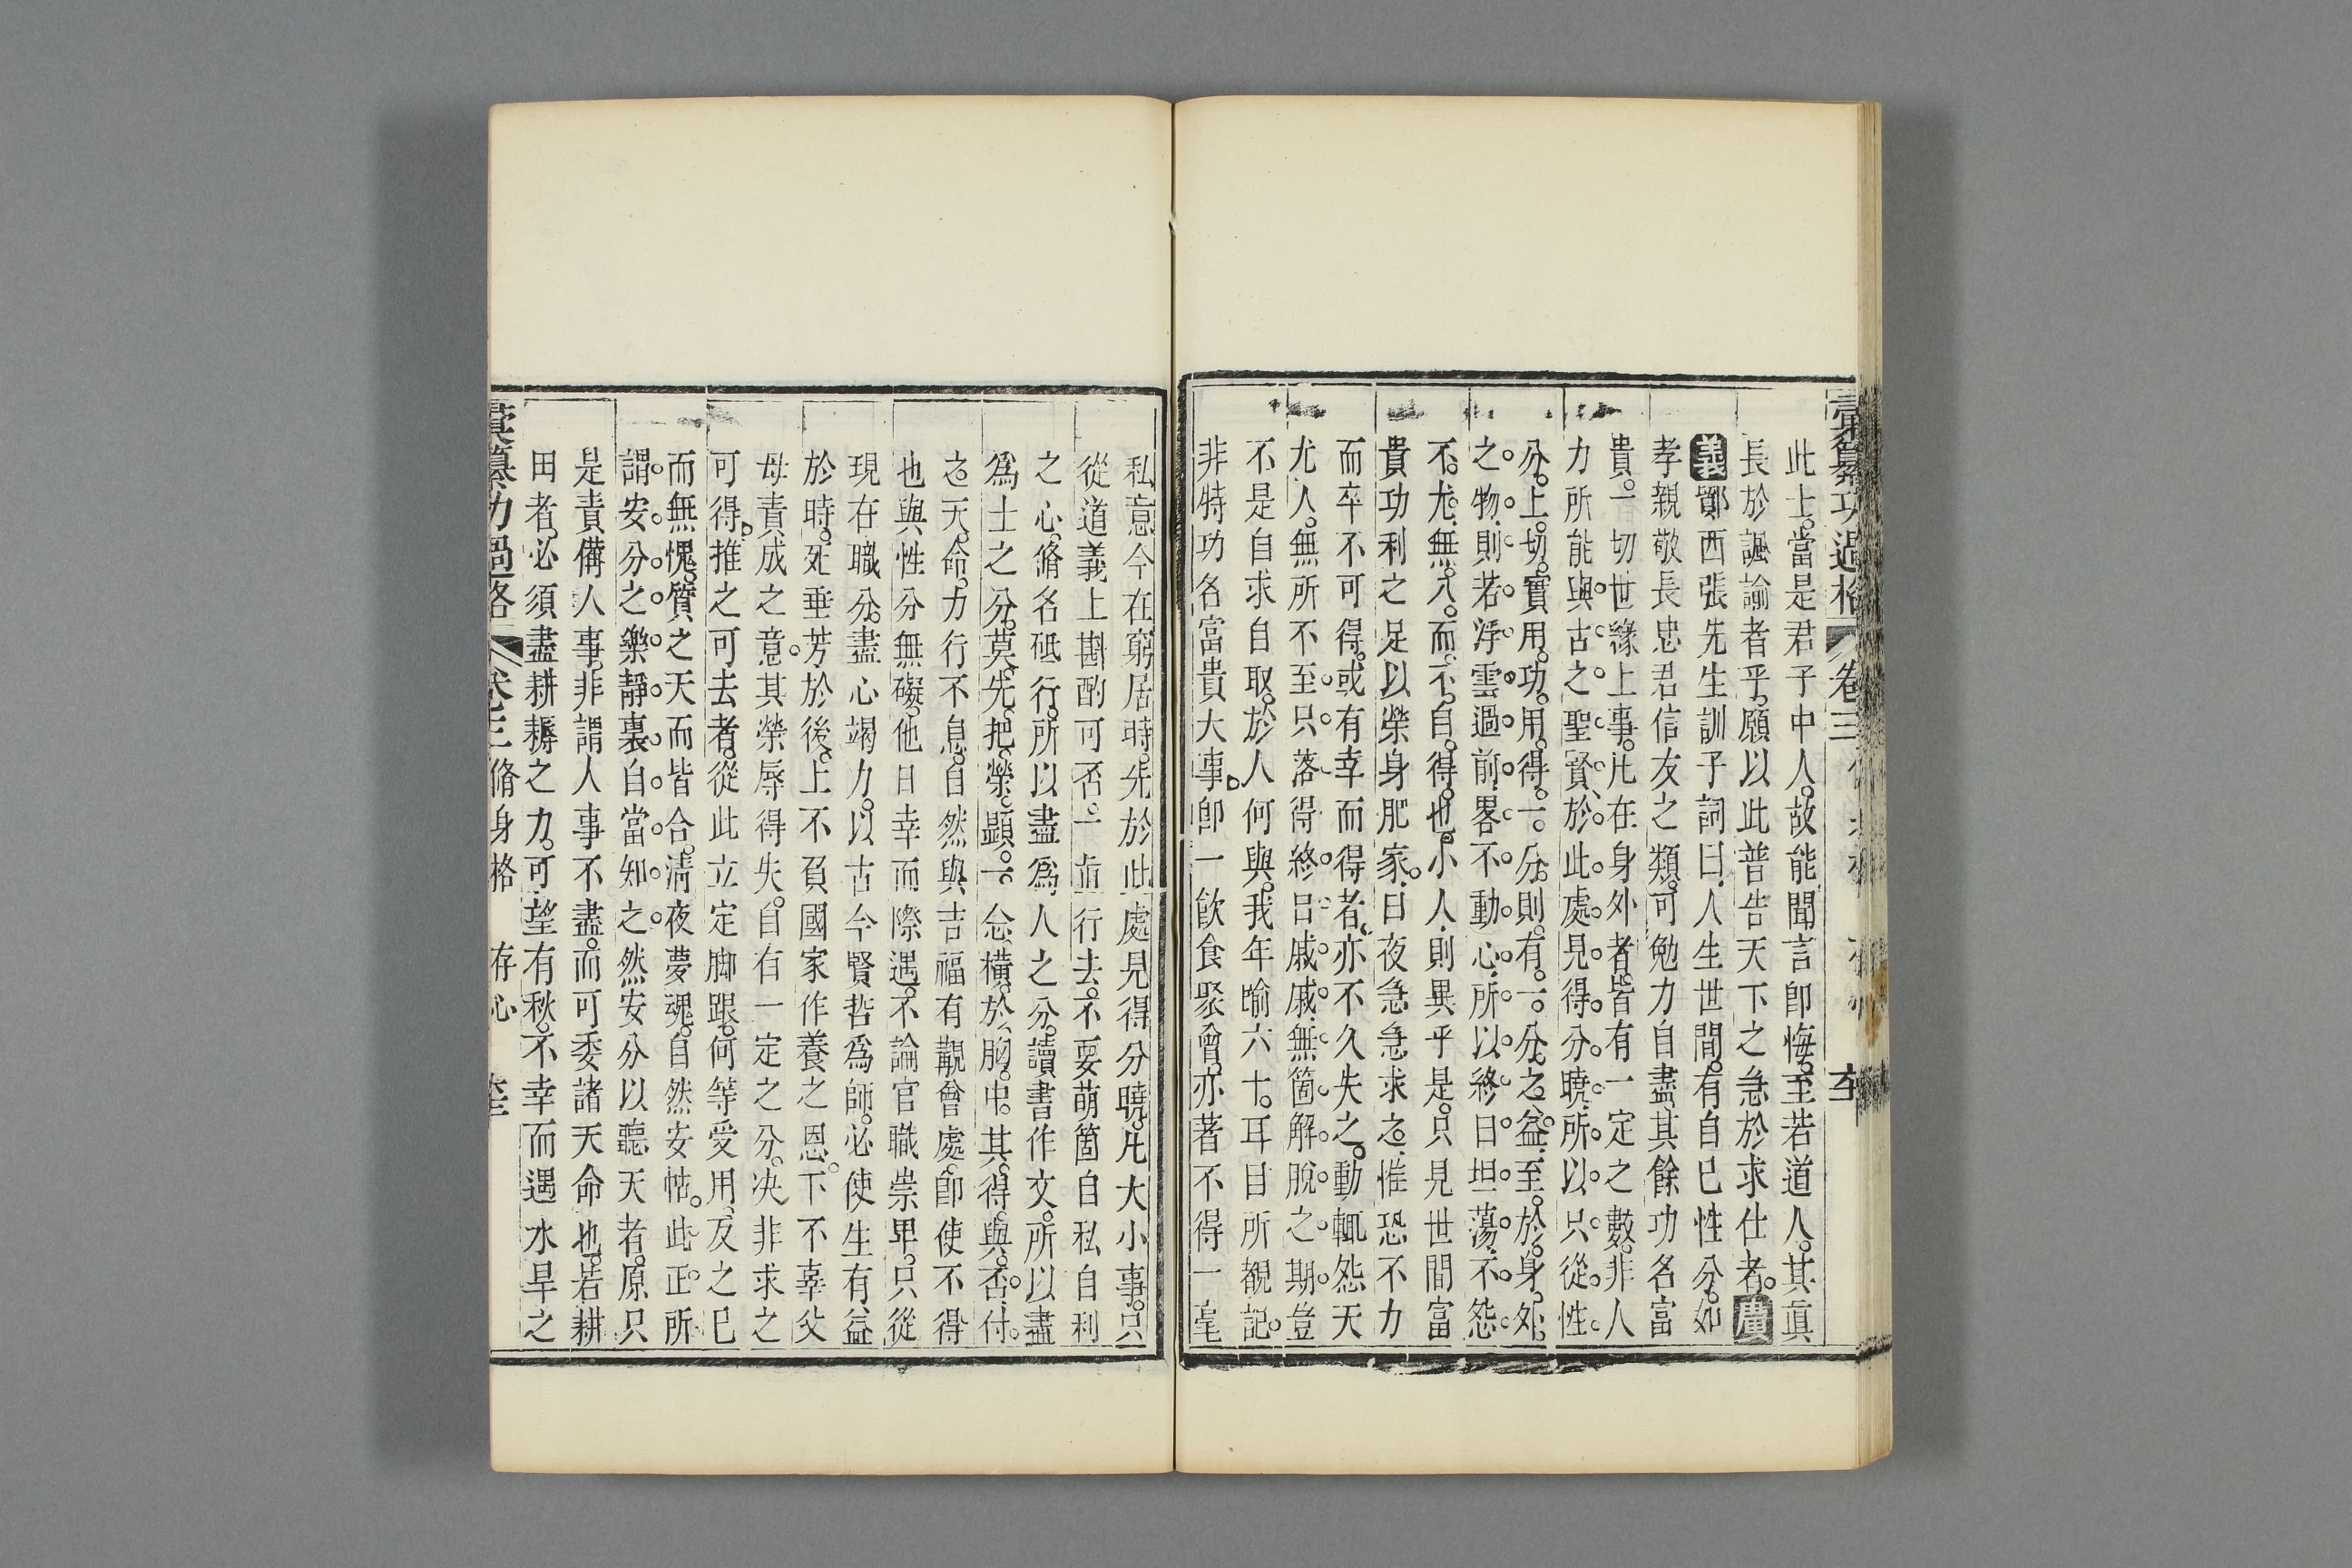 彙纂功過格 卷三
此士當是君子中人故能聞言卽悔至若道人其眞
長於諷諭者乎願以此普告天下之急於求仕者廣
義鄮西張先生訓子詞曰人生世間有自已性分如
孝親敬長忠君信友之類可勉力自盡其餘功名富
貴一切世緣上事凡在身外者皆有一定之數非人
力所能與古之聖賢於此處見得分曉所以只從性
分上切實用功用得一分則有一分之益至於身外
之物則若浮雲過前畧不動心所以終日坦蕩不怨
不尤無入而不自得也小人則異乎是只見世間富
貴功利之足以榮身肥家日夜急急求之惟恐不力
而卒不可得或有幸而得者亦不久失之動輒怨天
尤人無所不至只落得終日戚戚無箇解脫之期豈
不是自求自取於人何與我年踰六十耳目所覩記
非特功名富貴大事卽一飮食聚會亦著不得一毫
私意今在窮居時先於此處見得分曉凡大小事只
從道義上斟酌可否一直行去不要萌箇自私自利
之心脩名砥行所以盡爲人之分讀書作文所以盡
爲士之分莫先把榮顯一念橫於胸中其得與否付
之天命力行不息自然與吉福有覯會處卽使不得
也與性分無礙他日幸而際遇不論官職崇卑只從
現在職分盡心竭力以古今賢哲爲師必使生有益
於時死垂芳於後上不負國家作養之恩下不辜父
母責成之意其榮辱得失自有一定之分决非求之
可得推之可去者從此立定脚跟何等受用反之已
而無愧質之天而皆合淸夜夢魂自然安恬此正所
謂安分之樂靜裏自當知之然安分以聽天者原只
是責備人事非謂人事不盡而可委諸天命也若耕
田者必須盡耕耨之力可望有秋不幸而遇水旱之
彙纂功過格 卷三 脩身格 存心